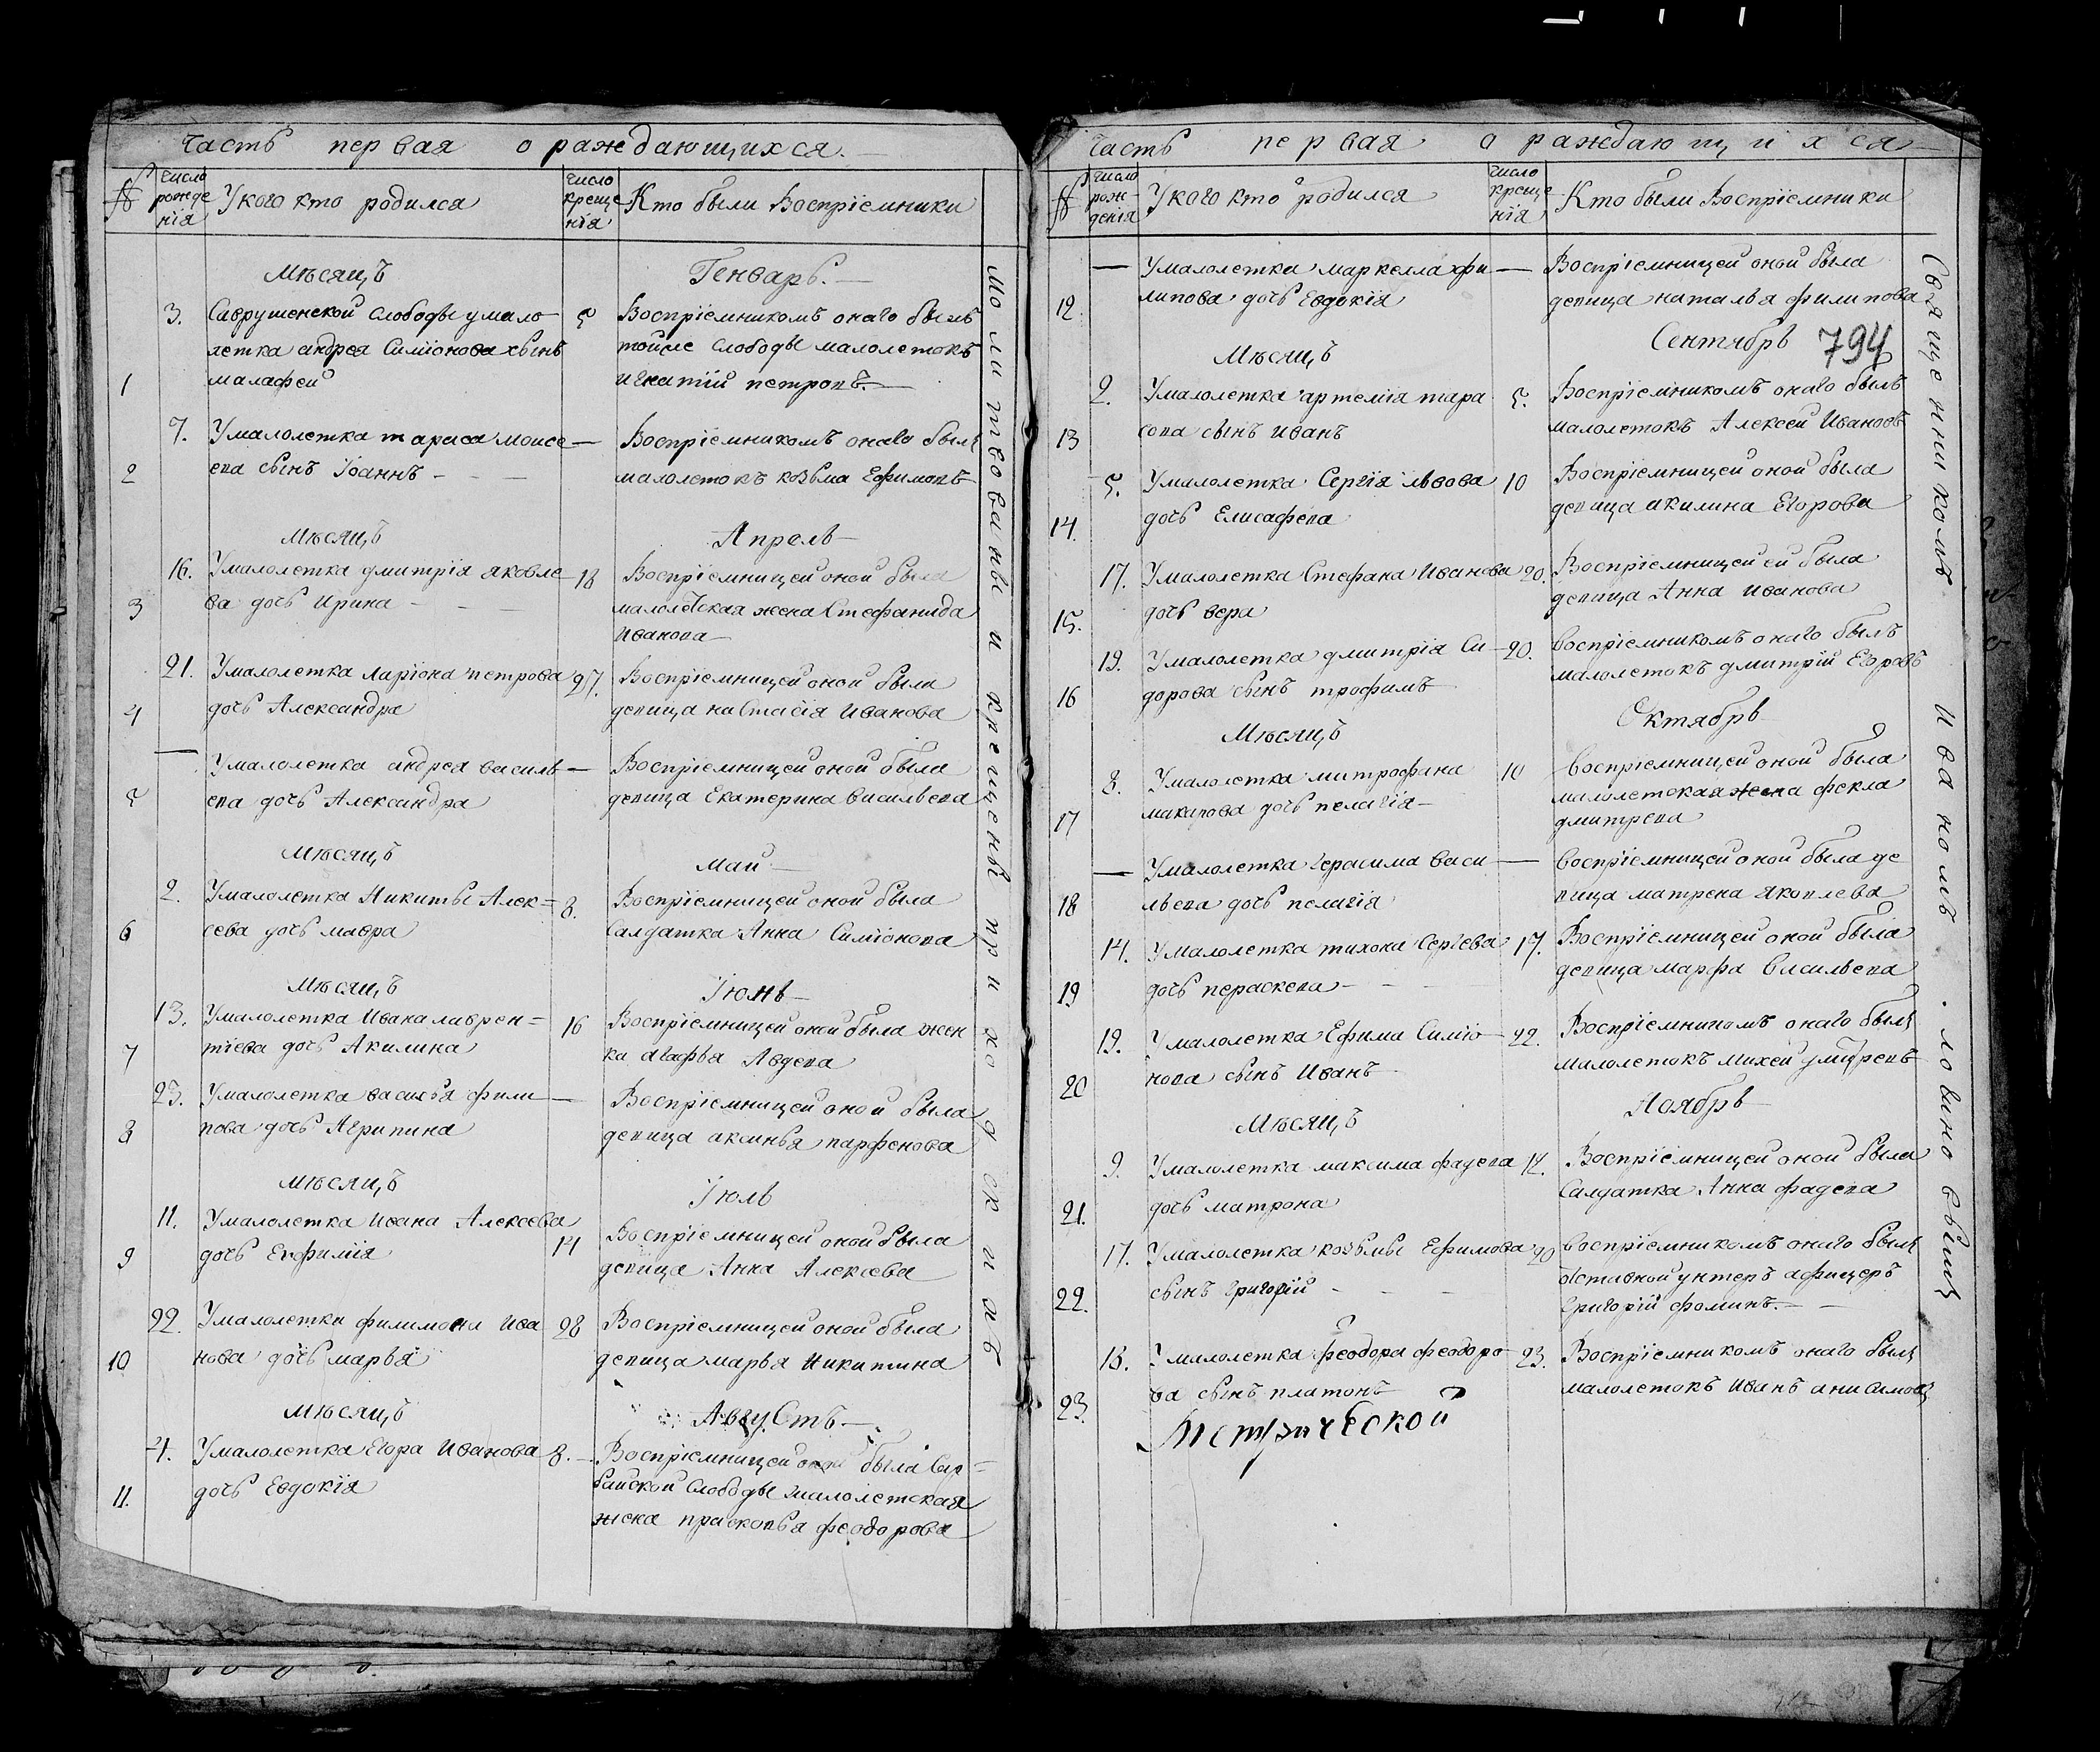 Часть первая о раждающихся.
№
число рожденія
У кого кто родился
число крещенія
Кто были Воспріемники
Мѣсяцъ
Генварь.
3.
Саврушенской слободы у мало
5
Воспріемникомъ онаго былъ
летка андрея Симіонова сынъ
тойже слободы малолетокъ
1
малафей
игнатій петровъ.
7.
У малолетка тараса моисе
—
Воспріемникомъ онаго былъ
2
ева сынъ Іоаннъ
малолетокъ козьма Ефимовъ
Мѣсяцъ
Апрель
16.
У малолетка дмитрія яковле
18
Воспріемницей оной была
3
ва дочь Ирина
малолетская жена Стефанида
Иванова
21.
У малолетка ларіона петрова
27.
Воспріемницей оной была
4
дочь Александра
девица настасія Иванова
—
У малолетка андрея василь
—
Воспріемницей оной была
5
ева дочь Александра
девица Екатерина васильева
Мѣсяцъ
май
2.
У малолетка Никиты Алек=
8.
Воспріемницей оной была
6
сева дочь мавра
Салдатка Анна Симіонова
Мѣсяцъ
Іюнь
13.
У малолетка Ивана лаврен=
16
Воспріемницей оной была жен
7
тіева дочь Акилина
ка агафья Авдева
23.
У малолетка василья фили
—
Воспріемницей оной была
8
пова дочь Агрипина
девица аксинья парфенова
Мѣсяцъ
Іюль
11.
У малолетка Ивана Алексеева
14
Воспріемницей оной была
9
дочь Евфимія
девица Анна Алексеева
22.
У малолетки филимона Ива
28
Воспріемницей оной была
10
нова дочь марья
девица марья Никитина
Мѣсяцъ
Августъ
4.
У малолетка Егора Иванова
8.
Воспріемницей оной была Сар=
11.
дочь Евдокія
байской Слободы малолетская
жена прасковья феодорова
молитвованы и крещены при
Часть первая о раждающихся
№
число рожденія
У кого кто родился
число крещенія
Кто были Воспріемники
—
У малолетка маркелла фи
—
Воспріемницей оной была
12
липова дочь Евдокія
девица наталья филипова
794
Мѣсяцъ
Сентябрь
2.
У малолетка артемія тара
5.
Воспріемникомъ онаго былъ
13
сова сынъ Иванъ
малолетокъ Алексей Ивановъ
5.
У малолетка Сергія львова
10
Воспріемницей оной была
14.
дочь Елисафева
девица акилина Егорова
17.
У малолетка Стефана Иванова
20.
Воспріемницей ей была
15.
дочь вера
девица Анна иванова
19.
У малолетка дмитрія Си
20.
Воспріемникомъ онаго былъ
16
дорова сынъ трофимъ
малолетокъ дмитрій Егоровъ
Мѣсяцъ
Октябрь
8.
У малолетка митрофана
10
Воспріемницей оной была
17
макапова дочь пелагія
малолетская жена фекла
дмитрева
—
У малолетка герасима васи
—
Воспріемницей оной была де
18
льева дочь пелагія
вица матрена яковлева
14.
У малолетка тихона Сергева
17.
Воспріемницей оной была
19
дочь пераскева
девица марфа васильева
19.
У малолетка Ефима Симіо
22.
Воспріемникомъ онаго былъ
20
нова сынъ Иванъ
малолетокъ михей дмитревъ
Мѣсяцъ
Ноябрь
9.
У малолетка максима фадева
12.
Воспріемницей оной была
21.
дочь матрона
Салдатка Анна фадева
17.
У малолетка козьмы Ефимова
20
Воспріемникомъ онаго былъ
22.
сынъ григорій
отставной унтеръ афицеръ
Григорій фоминъ.
18.
У малолетка феодора феодоро
23.
Воспріемникомъ онаго былъ
23.
ва сынъ платонъ
малолетокъ Иванъ анисимовъ
Метрической
Священникомъ Иваномъ